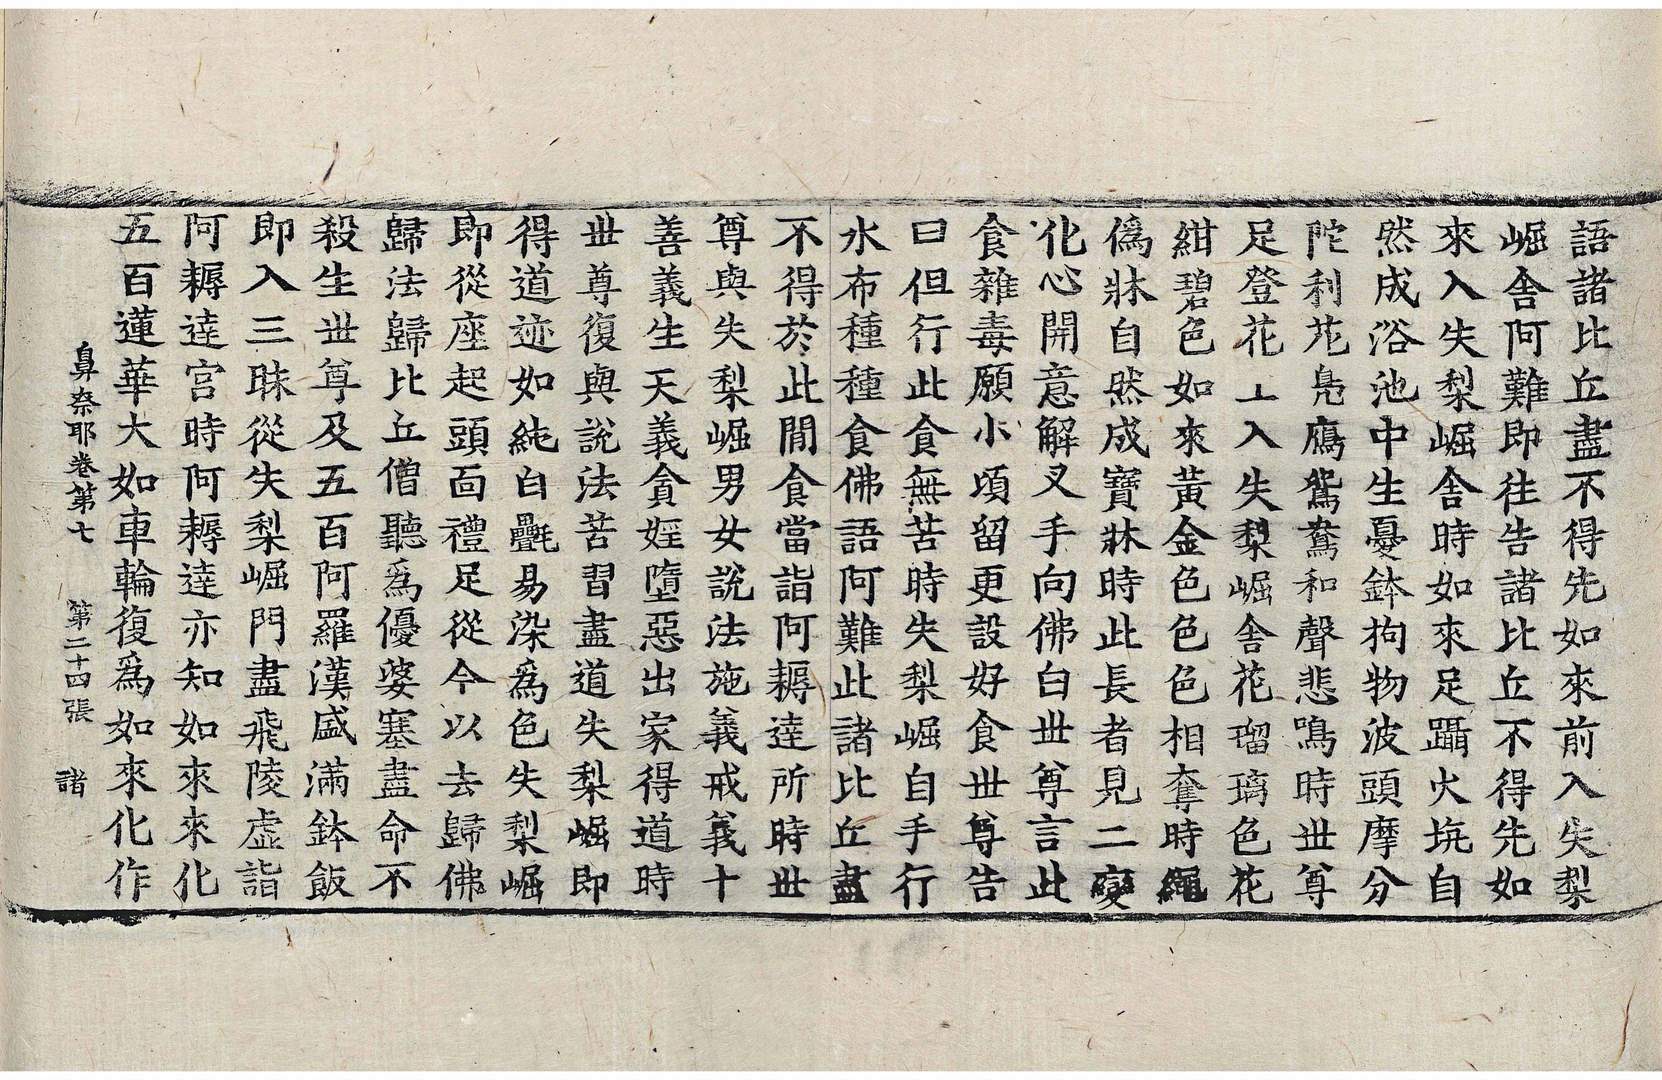 語諸比丘盡不得先如來前入失梨
崛舍阿難即往告諸比丘不得先如
來入失梨崛舍時如來足躡火坑自
然成浴池中生憂鉢拘物波頭摩分
陀利花鳧鴈鴛鴦和聲悲鳴時世尊
足登花上入失梨崛舍花瑠璃色花
紺碧色如來黃金色色色相奪時繩
爲牀自然成寶牀時此長者見二變
化心開意解叉手向佛白世尊言此
食雜毒願小頃留更設好食世尊告
曰但行此食無苦時失梨崛自手行
水布種種食佛語阿難此諸比丘盡
不得於此閒食當詣阿耨達所時世
尊與失梨崛男女說法施義戒義十
善義生天義貪婬墮惡出家得道時
世尊復與說法苦習盡道失梨崛即
得道迹如純白㲲易染爲色失梨崛
即從座起頭面禮足從今以去歸佛
歸法歸比丘僧聽爲優婆塞盡命不
殺生世尊及五百阿羅漢盛滿鉢飯
即入三昧從失梨崛門盡飛陵虛詣
阿耨達宮時阿耨達亦知如來來化
五百蓮華大如車輪復爲如來化作
鼻奈耶卷第七 第二十四張 諸